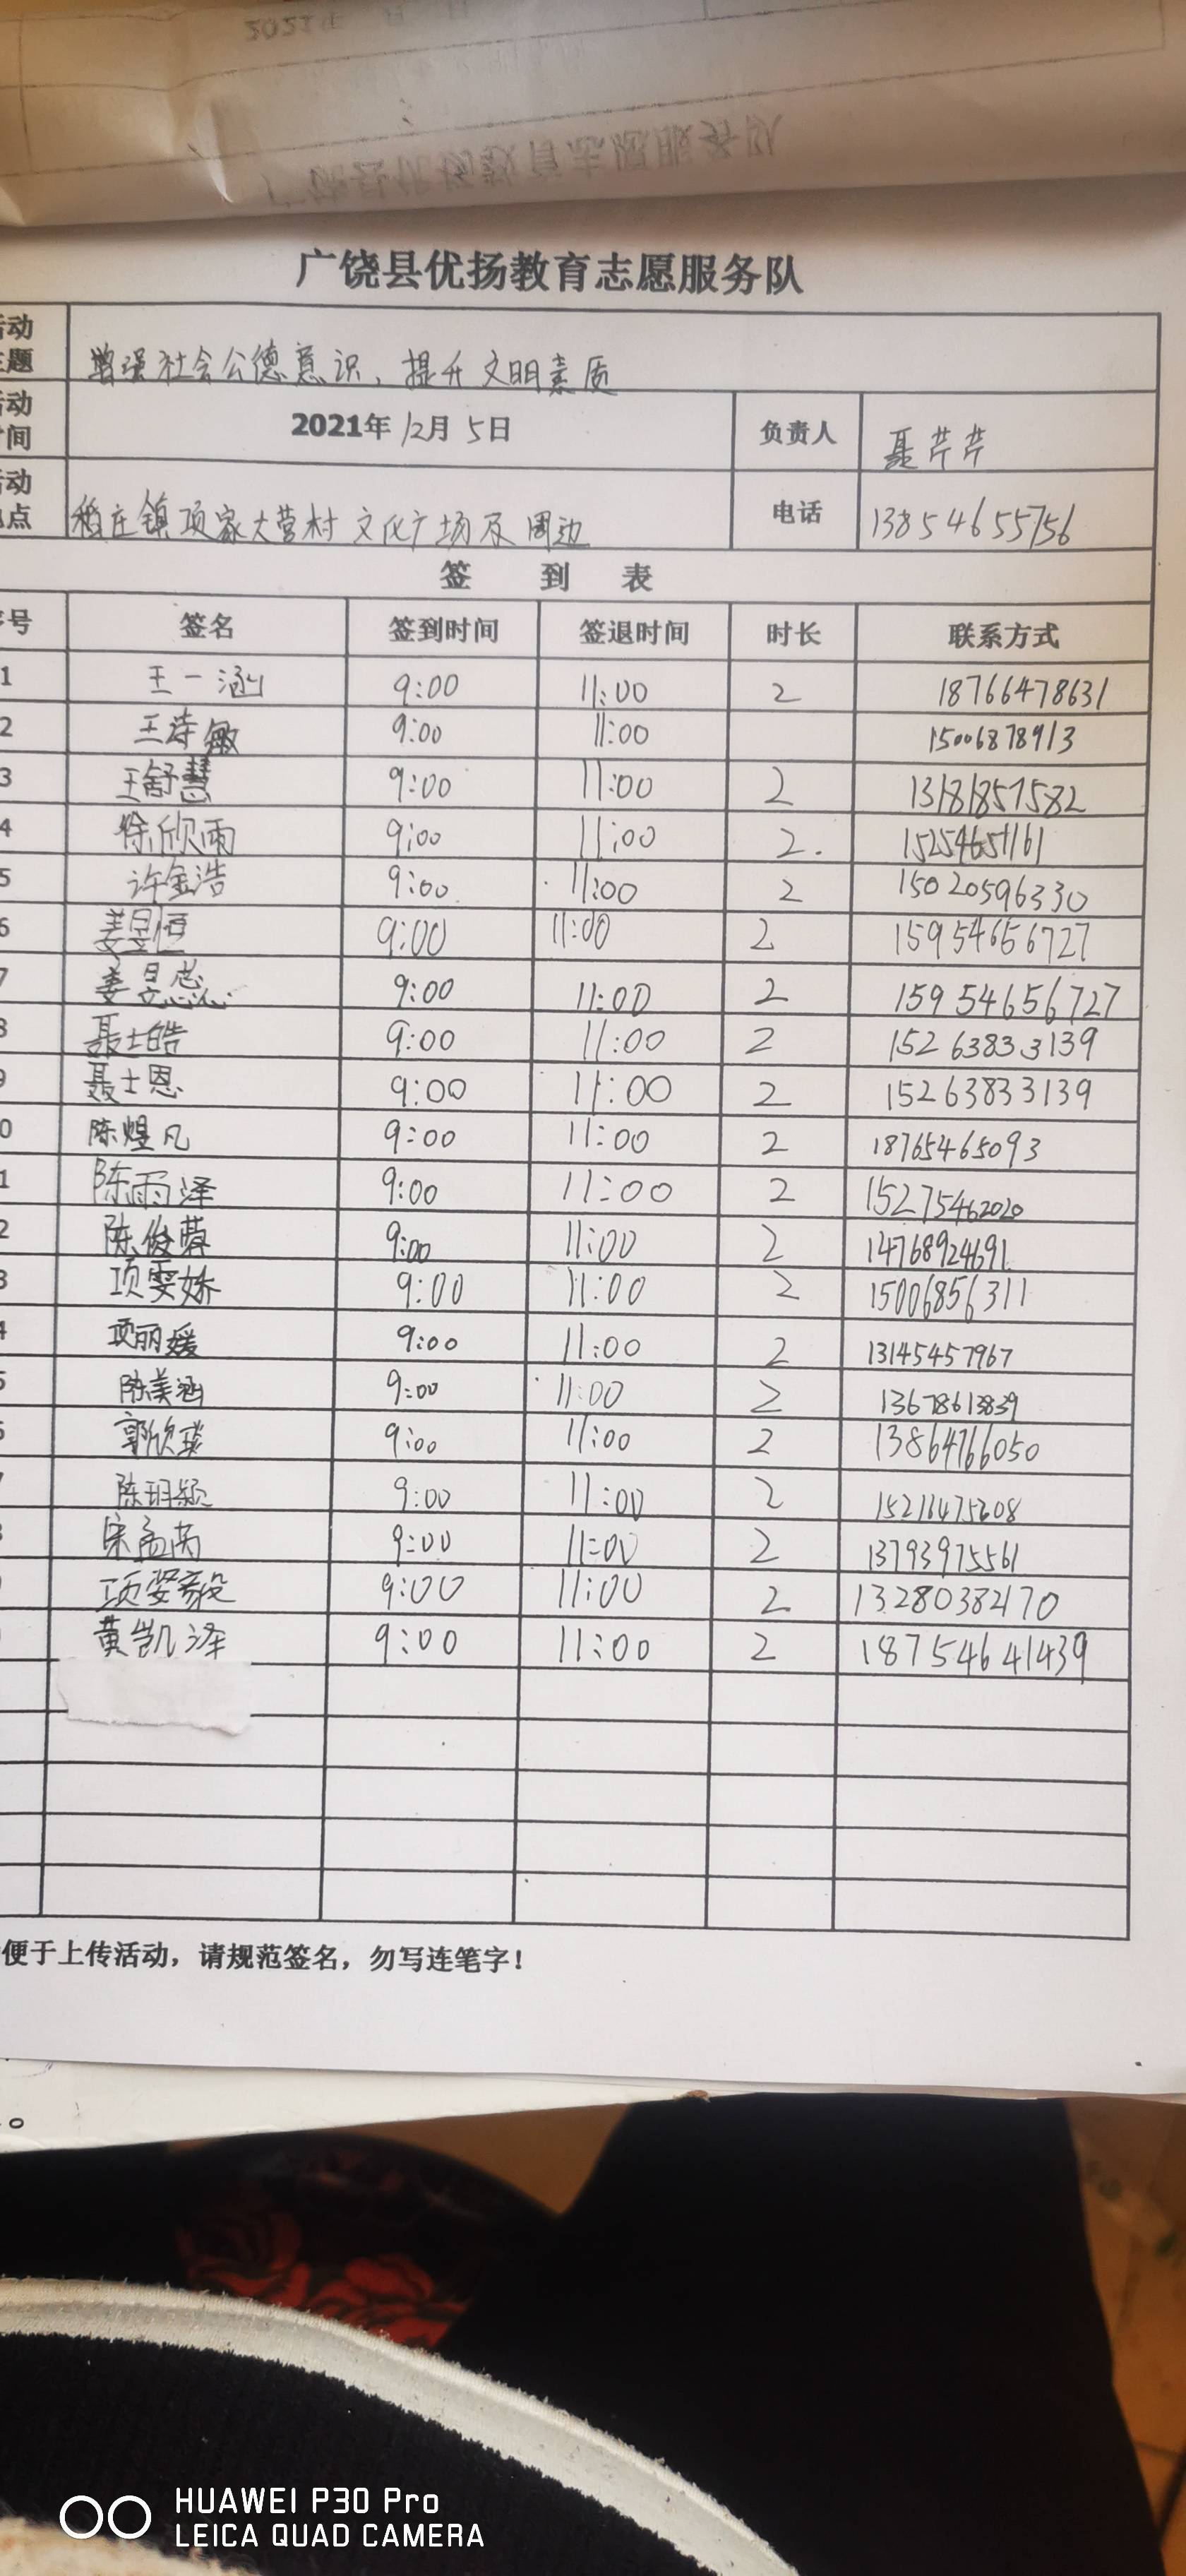 2021年 月 日
广饶县优扬教育志愿服务队
广饶县优扬教育志愿服务队
活动主题 增强社会公德意识、提升文明素质
活动时间 2021年12月5日 负责人 聂芹芹
活动地点 稻庄镇项家大营村文化广场及周边 电话 13854655756
签 到 表
序号 签名 签到时间 签退时间 时长 联系方式
1 王一涵 9:00 11:00 2 18766478631
2 王诗敏 9:00 11:00 15006878913
3 王舒慧 9:00 11:00 2 13181857582
4 徐欣雨 9:00 11:00 2. 15254651161
5 许金浩 9:00 11:00 2 15020596330
6 姜昱恒 9:00 11:00 2 15954656727
7 姜昱 9:00 11:00 2 15954656727
8 聂士皓 9:00 11:00 2 15263833139
9 聂士恩 9:00 11:00 2 15263833139
0 陈煜凡 9:00 11:00 2 18765465093
1 陈雨泽 9:00 11:00 2 15275462020
2 陈俊蓉 9:00 11:00 2 14768924691
3 项雯 9:00 11:00 2 15006856311
4 项丽媛 9:00 11:00 2 13145457967
5 陈美涵 9:00 11:00 2 13678613839
6 郭欣 9:00 11:00 2 13864766050
7 陈玥颖 9:00 11:00 2
8 宋孟芮 9:00 11:00 2 13793975561
项姿毅 9:00 11:00 2 13280382170
黄凯泽 9:00 11:00 2 18754641439
便于上传活动，请规范签名，勿写连笔字！
HUAWEI P30 Pro
LEICA QUAD CAMERA